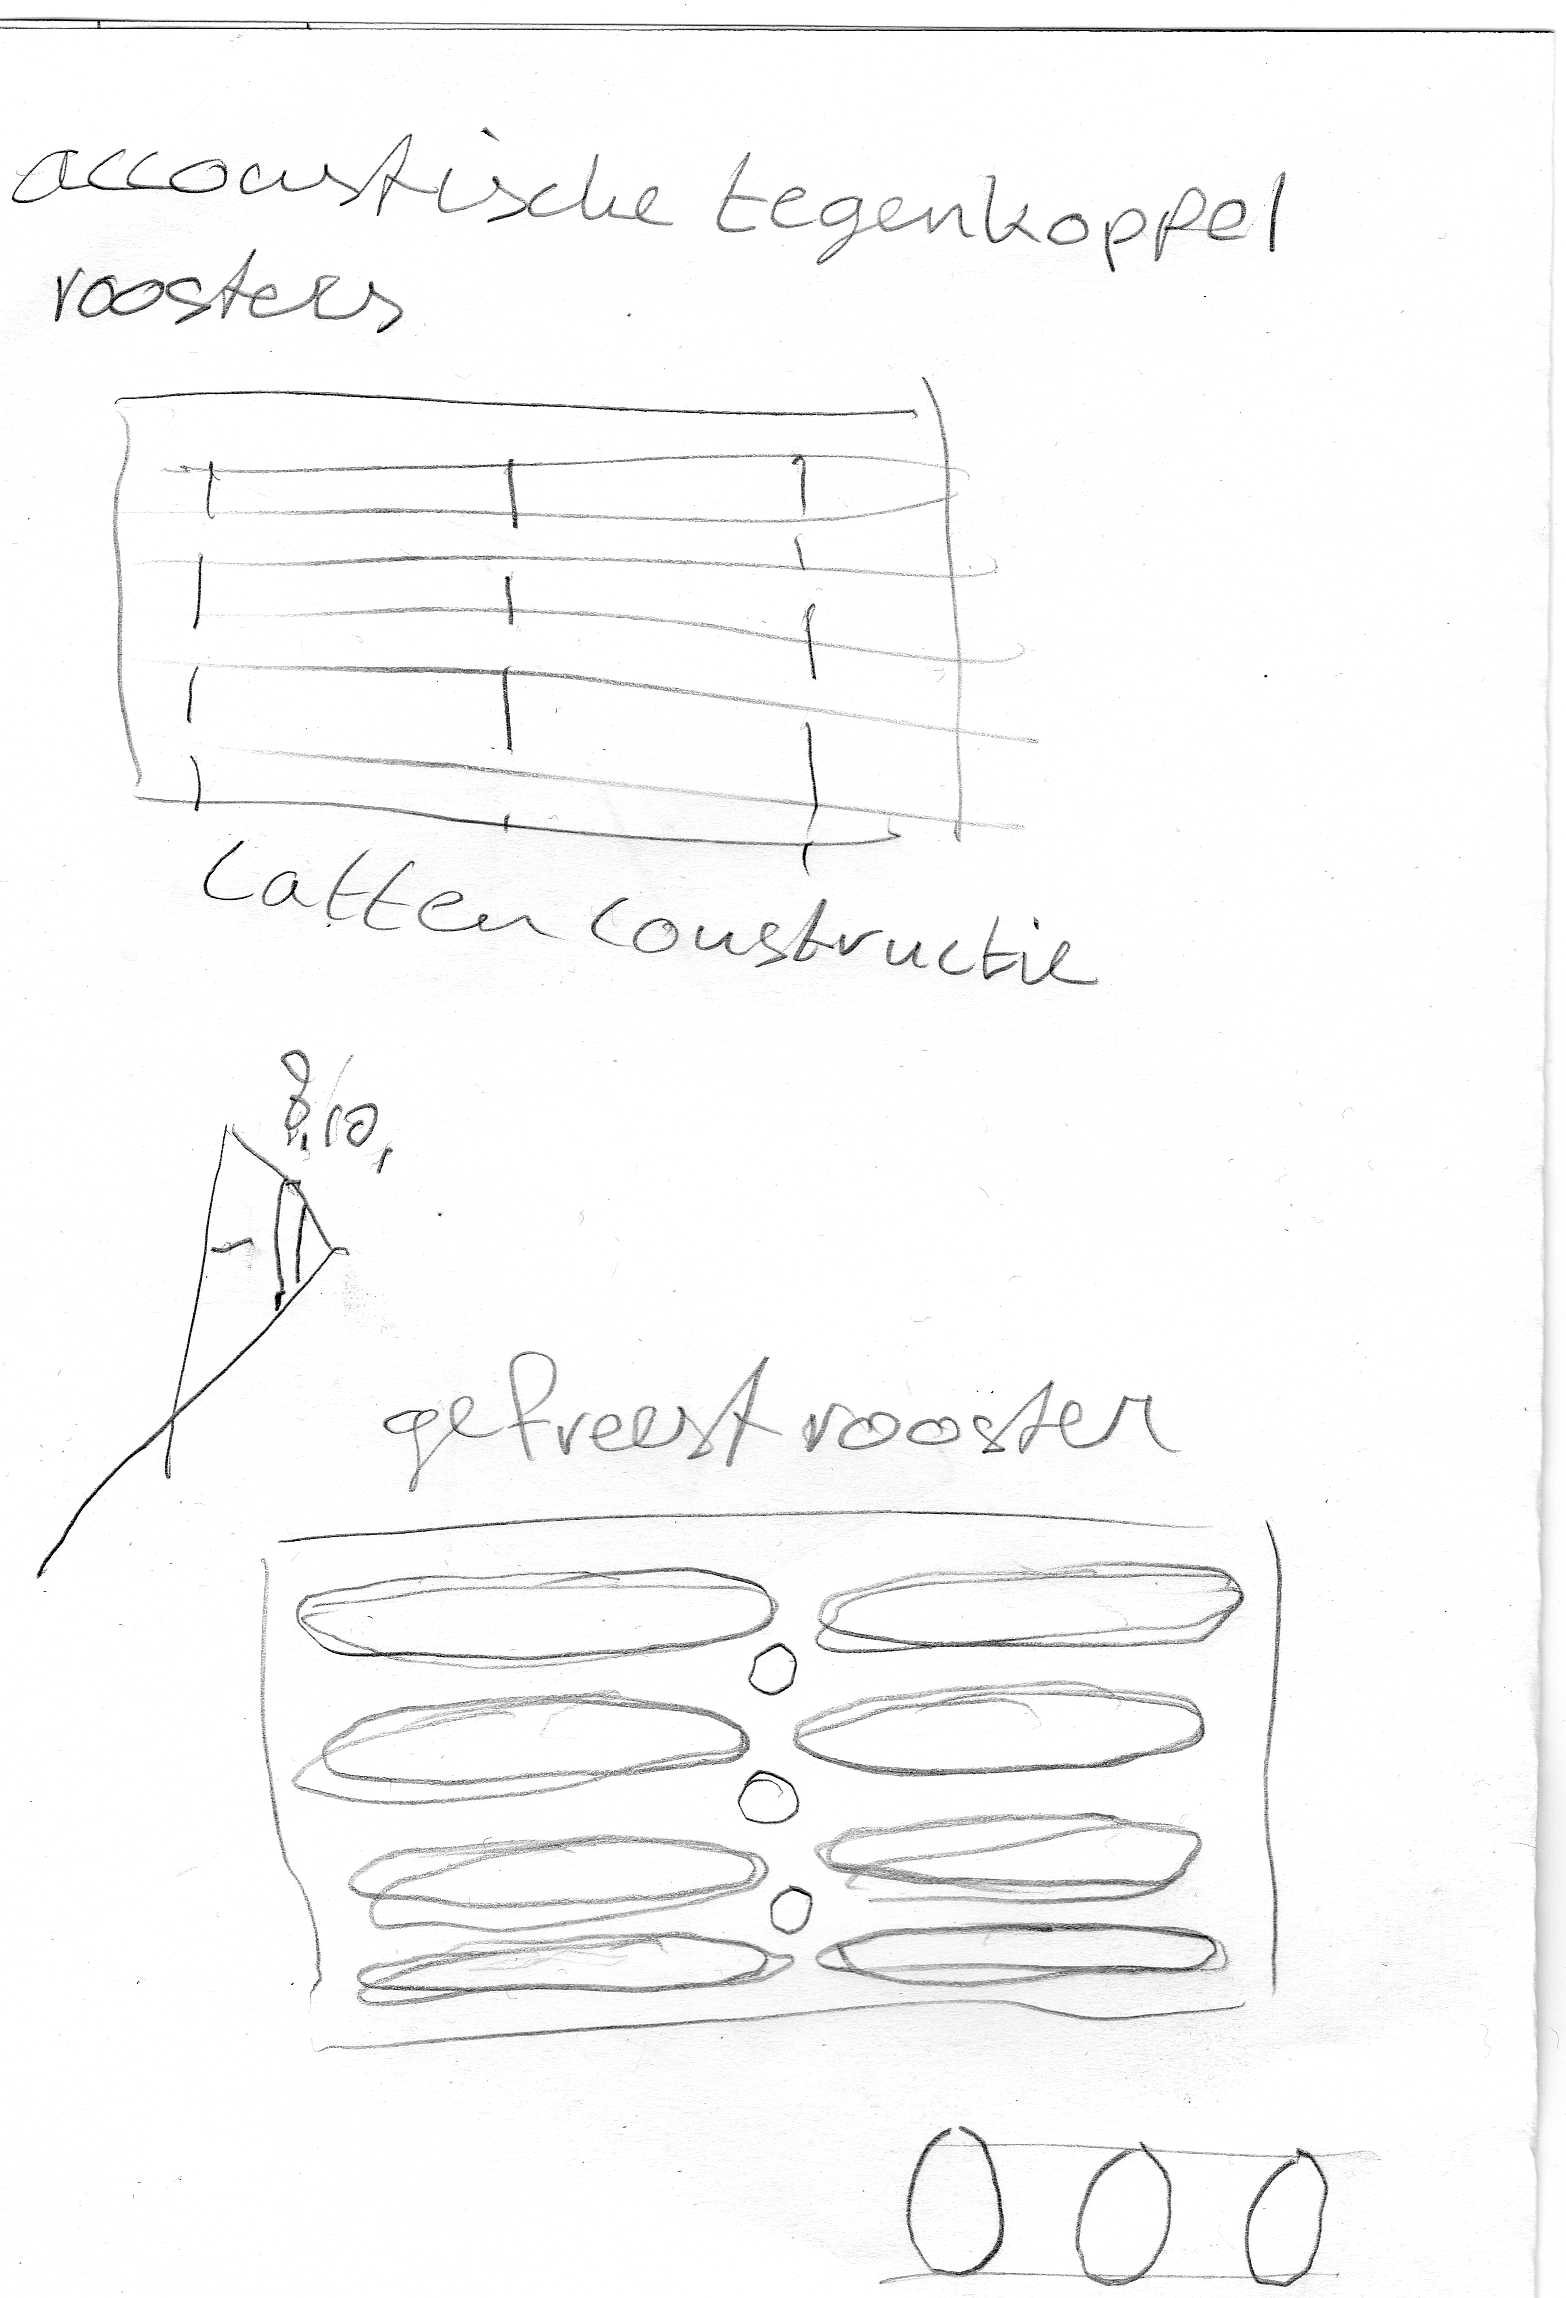 accoustische tegenkoppel
roosters
Latten constructie
8/10,
gefreest rooster